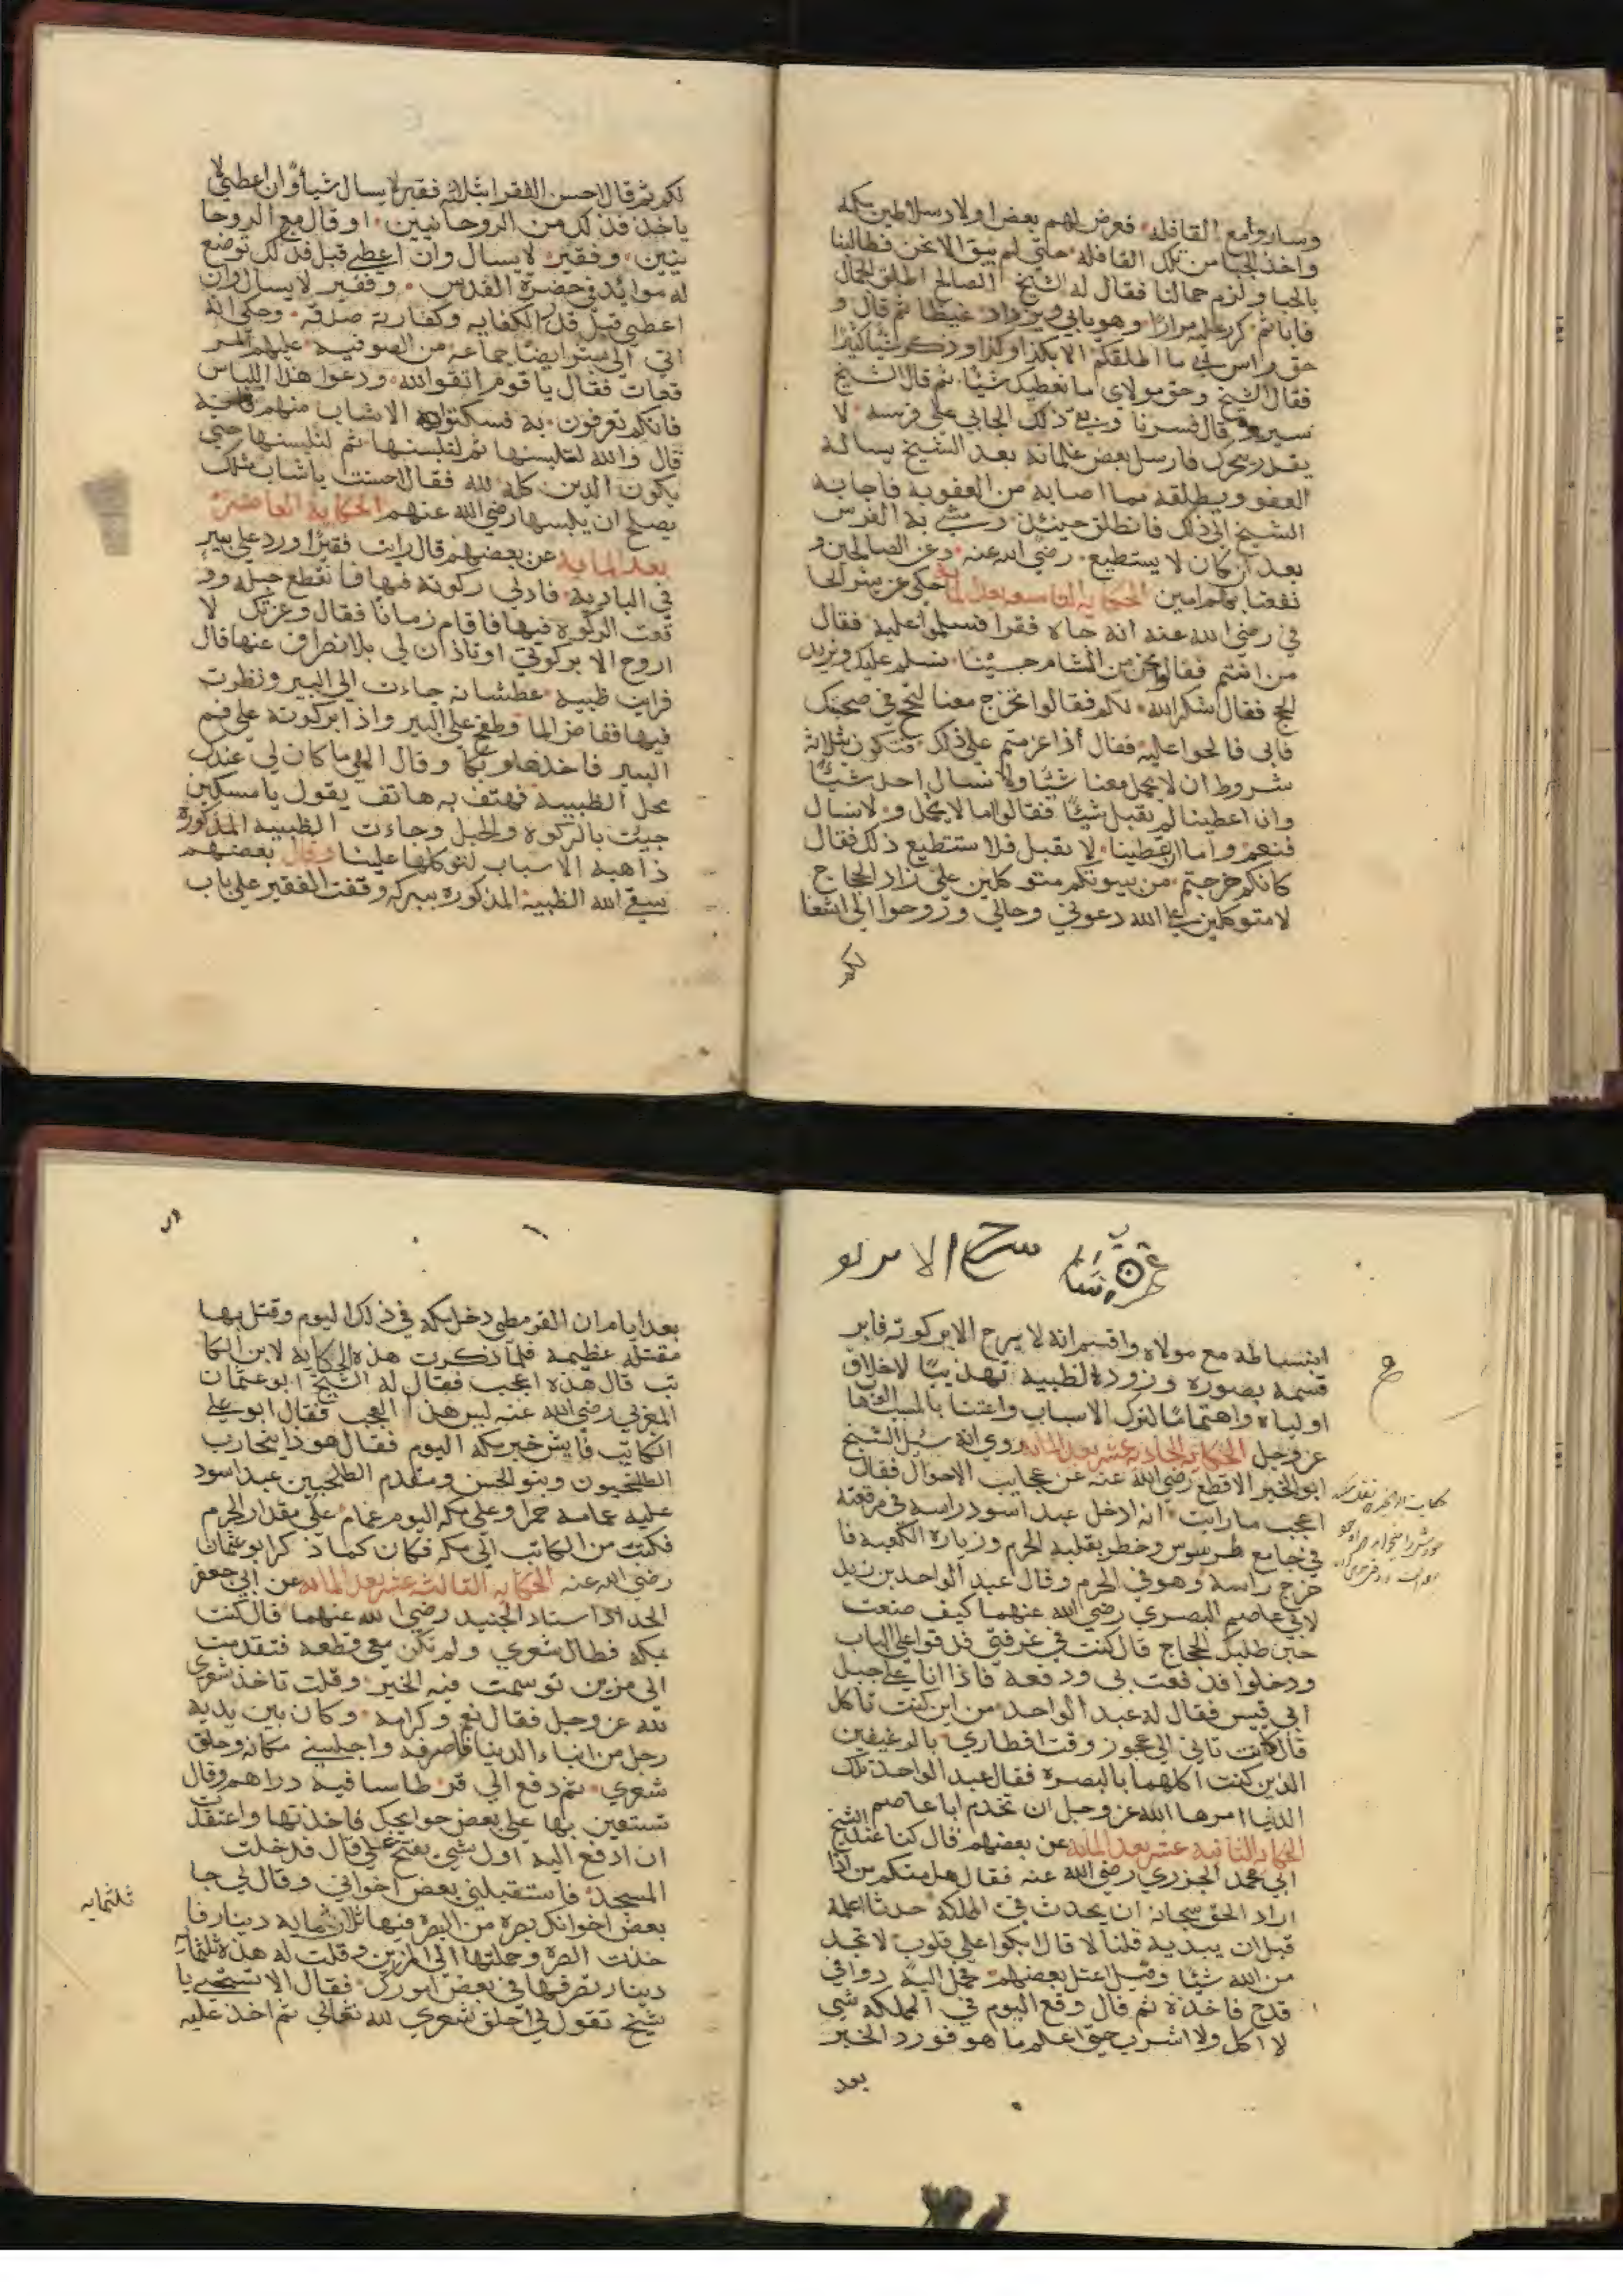 وساروا مع القافلة فعرض لهم بعض اولاد سلاطين مكه
واخذ الجبا من تلك القافله حتى لم يبق الا نحن فطالبنا
بالجبا ولزم جمالنا فقال له الشيخ الصالح اطلق الجمال
فابا ثم كرر عليه مرارا وهو يابى ويزداد غيظا ثم قال و
حق راس ابي ما اطلقكم الا بكذا وكذا وذكر شيئا كثيرا
فقال الشيخ وحق مولاي ما نعطيك شيئا ثم قال الشيخ
سيروا قال فسرنا وبقي ذلك الجابي على فرسه لا
يقدر يتحرك فارسل بعض غلمانه بعد الشيخ يساله
العفو ويطلقه مما اصابه من العقوبه فاجابه
الشيخ الى ذلك فانطلق حينئذ ومشى به الفرس
بعد ان كان لا يستطيع رضي الله عنه وعن الصالحين و
نفعنا بهم امين الحكايه التاسعه بعد المايه حكي عن بشر الحا
في رضي الله عنه انه جاه فقرا فسلموا عليه فقال
من انتم فقالوا نحن من الشام جينا نسلم عليك ونريد
الحج فقال شكر الله لكم فقالوا تخرج معنا لنحج في صحبتك
فابى فالحوا عليه فقال اذا عزمتم على ذلك فتكون بثلاثة
شروط ان لا نحمل معنا شيئا ولا نسال احد شيئا
وان اعطينا لم نقبل شيئا فقالوا اما لا نحمل ولا نسال
فنعم واما ان اعطينا لا نقبل فلا نستطيع ذلك فقال
كانكم خرجتم من بيوتكم متوكلين على زاد الحجاج
لا متوكلين على الله دعوني وحالي وروحوا الى اشغا
لكم
لكم ثم قال احسن الفقرا ثلاثة فقير لا يسال شيأ وان اعطي لا
ياخذ فذلك من الروحانيين او قال مع الروحا
نيين وفقير لا يسال وان اعطي قبل فذلك توضع
له موايد في حضرة القدس وفقير لا يسال وان
اعطي قبل قدر الكفايه وكفارته صدقه وحكي انه
اتى الى بشر ايضا جماعه من الصوفيه عليهم المر
قعات فقال يا قوم اتقوا الله ودعوا هذا اللباس
فانكم تعرفون به فسكتوا الا شاب منهم
قال والله لنلبسنها ثم لنلبسنها ثم لنلبسنها حتى
يكون الدين كله لله فقال احسنت يا شاب مثلك
يصلح ان يلبسها رضي الله عنهم الحكاية العاشرة
بعد المايه عن بعضهم قال رايت فقيرا ورد على بير
في البادية فادلى ركوته فيها فانقطع حبله وو
قعت الركوه فيها فاقام زمانا فقال وعزتك لا
اروح الا بركوتي او تاذن لي بالانصراف عنها قال
فرايت ظبية عطشانه جاءت الى البير ونظرت
فيها ففاض الما وطفح على البير واذا بركوته على فم
البير فاخذها وبكا وقال الهي ما كان لي عندك
محل الظبية فهتف به هاتف يقول يا مسكين
جيت بالركوه والحبل وجاءت الظبيه المذكورة
ذاهبه الاسباب لتوكلها علينا وقال بعضهم
سقى الله الظبية المذكوره ببركه وقفت الفقير على باب
ابنساطه مع مولاه واقسم انه لا يبرح الا بركوته فابر
قسمه بصوره ورود الظبيه تهذيبا لاخلاق
اولياه واهتماما لترك الاسباب واعتنا بالمسبب لها
عز وجل الحكايه الحاديه عشر بعد المايه روي انه سيل الشيخ
ابو الخير الاقطع رضي الله عنه عن عجايب الاحوال فقال
اعجب ما رايت انه ادخل عبد اسود راسه في مرقعته
في جامع طرسوس وخطر بقلبه الحرم وزيارة الكعبه فا
خرج راسه وهو في الحرم وقال عبد الواحد بن زيد
لابي عاصم البصري رضي الله عنهما كيف صنعت
حين طلبك الحجاج قال كنت في غرفتي فدقوا على الباب
ودخلوا فدفعت بي ودفعه فاذا انا على جبل
ابي قبيس فقال له عبد الواحد من اين كنت تاكل
قال كانت تاتي الي عجوز وقت افطاري بالرغيفين
الذين كنت اكلهما بالبصره فقال عبد الواحد تلك
الدنيا امرها الله عز وجل ان تخدم ابا عاصم
الحكايه الثانيه عشر بعد المايه عن بعضهم قال كنا عند الشيخ
ابي محمد الجزري رضي الله عنه فقال هل منكم من اذا
اراد الحق سبحانه ان يحدث في المملكة حدثا اعلمه
قبل ان يبديه قلنا لا قال ابكوا على قلوب لا تجد
من الله شيئا وقيل اعتل بعضهم فحمل اليه دوا في
قدح فاخذه ثم قال وقع اليوم في المملكه شي
لا اكل ولا اشرب حتى اعلم ما هو فورد الخبر
بعد
بعد ايام ان القرمطي دخل مكه في ذلك اليوم وقتل بها
مقتلة عظيمه فلما ذكرت هذه الحكايه لابن الكا
تب قال هذه اعجب فقال له الشيخ ابو عثمان
المغربي رضي الله عنه ليس هذا العجب فقال ابو علي
الكاتب فايش خبر مكه اليوم فقال هوذا يتحارب
الطلحيون وبنو الحسن ومقدم الطلحيين عبد اسود
عليه عمامة حمرا وعلى مكه اليوم غمام على مقدار الحرم
فكتب من الكاتب الى مكه فكان كما ذكر ابو عثمان
رضي الله عنه الحكايه الثالثه عشر بعد المايه عن ابي جعفر
الحداد استاد الجنيد رضي الله عنهما قال كنت
بمكه فطال شعري ولم تكن معي قطعه فتقدمت
الى مزين توسمت فيه الخير وقلت تاخذ شعري
لله عز وجل فقال نعم وكرامه وكان بين يديه
رجل من ابناء الدنيا فاصرفه واجلسني مكانه وحلق
شعري ثم دفع الي قرطاسا فيه دراهم وقال
تستعين بها على بعض حوايجك فاخذتها واعتقدت
ان ادفع اليه اول شي يفتح علي قال فدخلت
المسجد فاستقبلني بعض اخواني وقال لي جا
بعض اخوانك بصره من البصره فيها ثلاثمايه دينار فا
خذت الصره وحملتها الى المزين وقلت له هذه ثلثمايه
دينار تصرفها في بعض امورك فقال الا تستحي يا
شيخ تقول لي احلق شعري لله تعالى ثم اخذ عليه
ثلثمايه